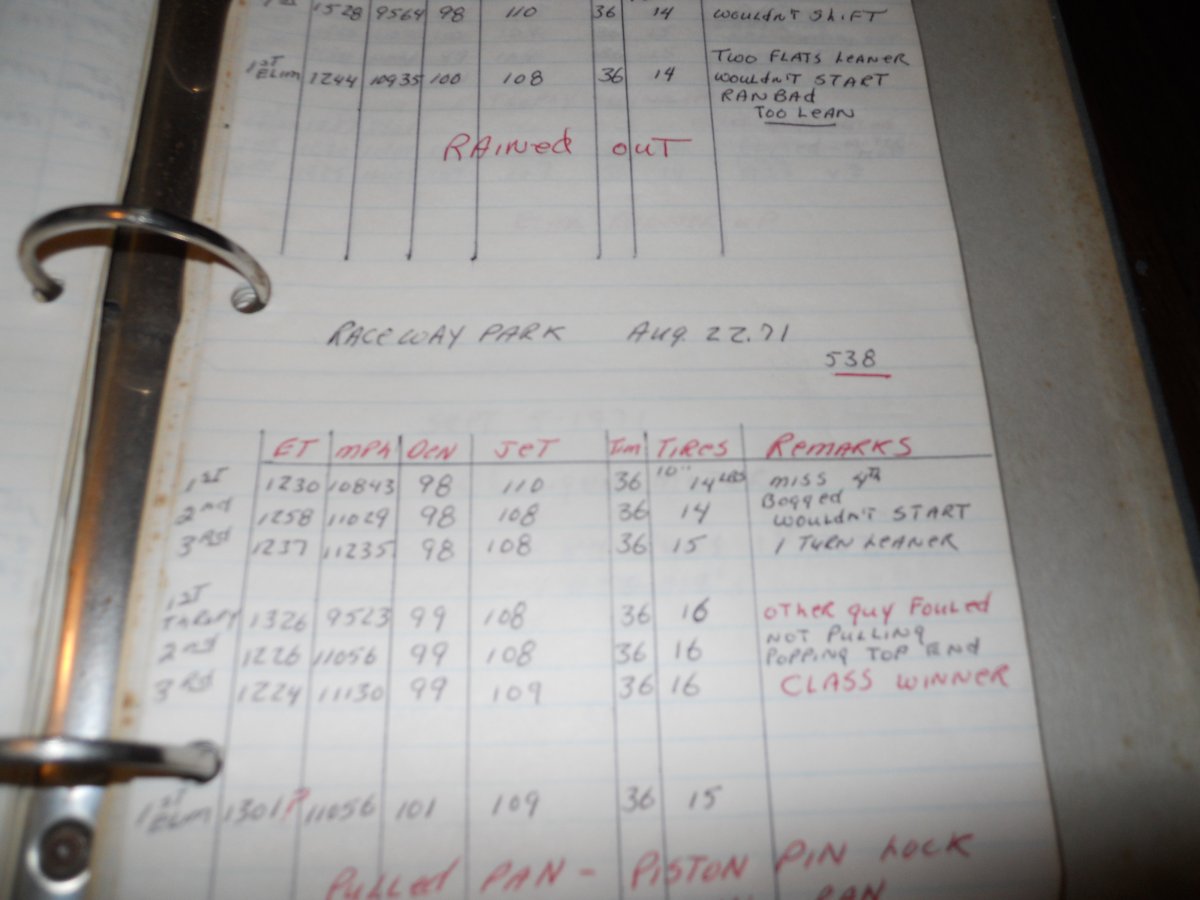 1528 9564 98 110 36 14 WOULDN'T SHIFT
TWO FLATS LEANER
1ST ELIM 1244 10935 100 108 36 14 WOULDN'T START
RAN BAD
TOO LEAN
RAINED OUT
RACEWAY PARK AUG. 22.71
538
ET MPH DEN JET TIM TIRES REMARKS
1ST 1230 10843 98 110 36 10" 14 LBS MISS 4TH
BOGGED
2ND 1258 11029 98 108 36 14 WOULDN'T START
3RD 1237 11235 98 108 36 15 1 TURN LEANER
1ST
1326 9523 99 108 36 16 OTHER GUY FOULED
NOT PULLING
2ND 1226 11056 99 108 36 16 POPPING TOP END
3RD 1224 11130 99 109 36 16 CLASS WINNER
1ST ELIM 1301? 11056 101 109 36 15
PULLED PAN - PISTON PIN LOCK
PAN